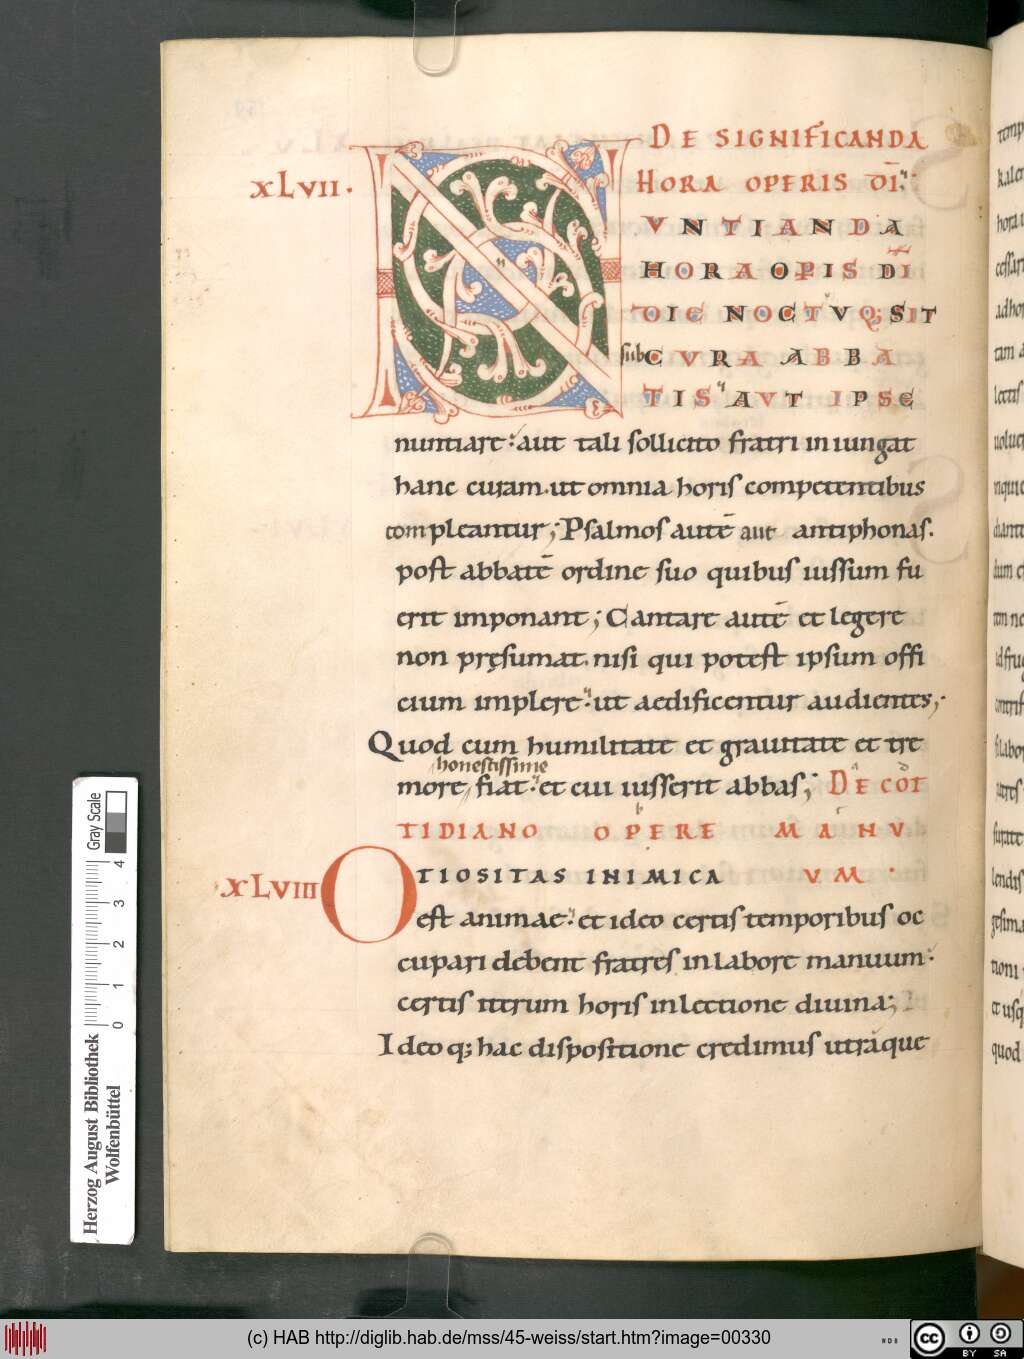 DE SIGNIFICANDA
XLVII. HORA OPERIS DI
NUNTIANDA
HORA OPIS DI
DIE NOCTVQ; SIT
sub CVRA ABBA
TIS AVT IPSE
nuntiare: aut tali sollicito fratri iniungat
hanc curam. ut omnia horis competentibus
compleantur; Psalmos autē aut antiphonas.
post abbatē ordine suo quibus iussum fu
erit imponant; Cantare autē et legere
non pręsumat. nisi qui potest ipsum offi
cium implere. ut aedificentur audientes;
Quod cum humilitate et grauitate et tre
honestissime
more fiat: et cui iusserit abbas; DE COT
TIDIANO OPERE MANV
XLVIII OTIOSITAS INIMICA VM
est animae: et ideo certis temporibus oc
cupari debent fratres in labore manuum:
certis iterum horis in lectione diuina;
Ideoq; hac dispositione credimus utraque
kalen
lectis
quod
Gray Scale
0 1 2 3 4
Herzog August Bibliothek
Wolfenbüttel
(c) HAB http://diglib.hab.de/mss/45-weiss/start.htm?image=00330
WDB
cc BY SA